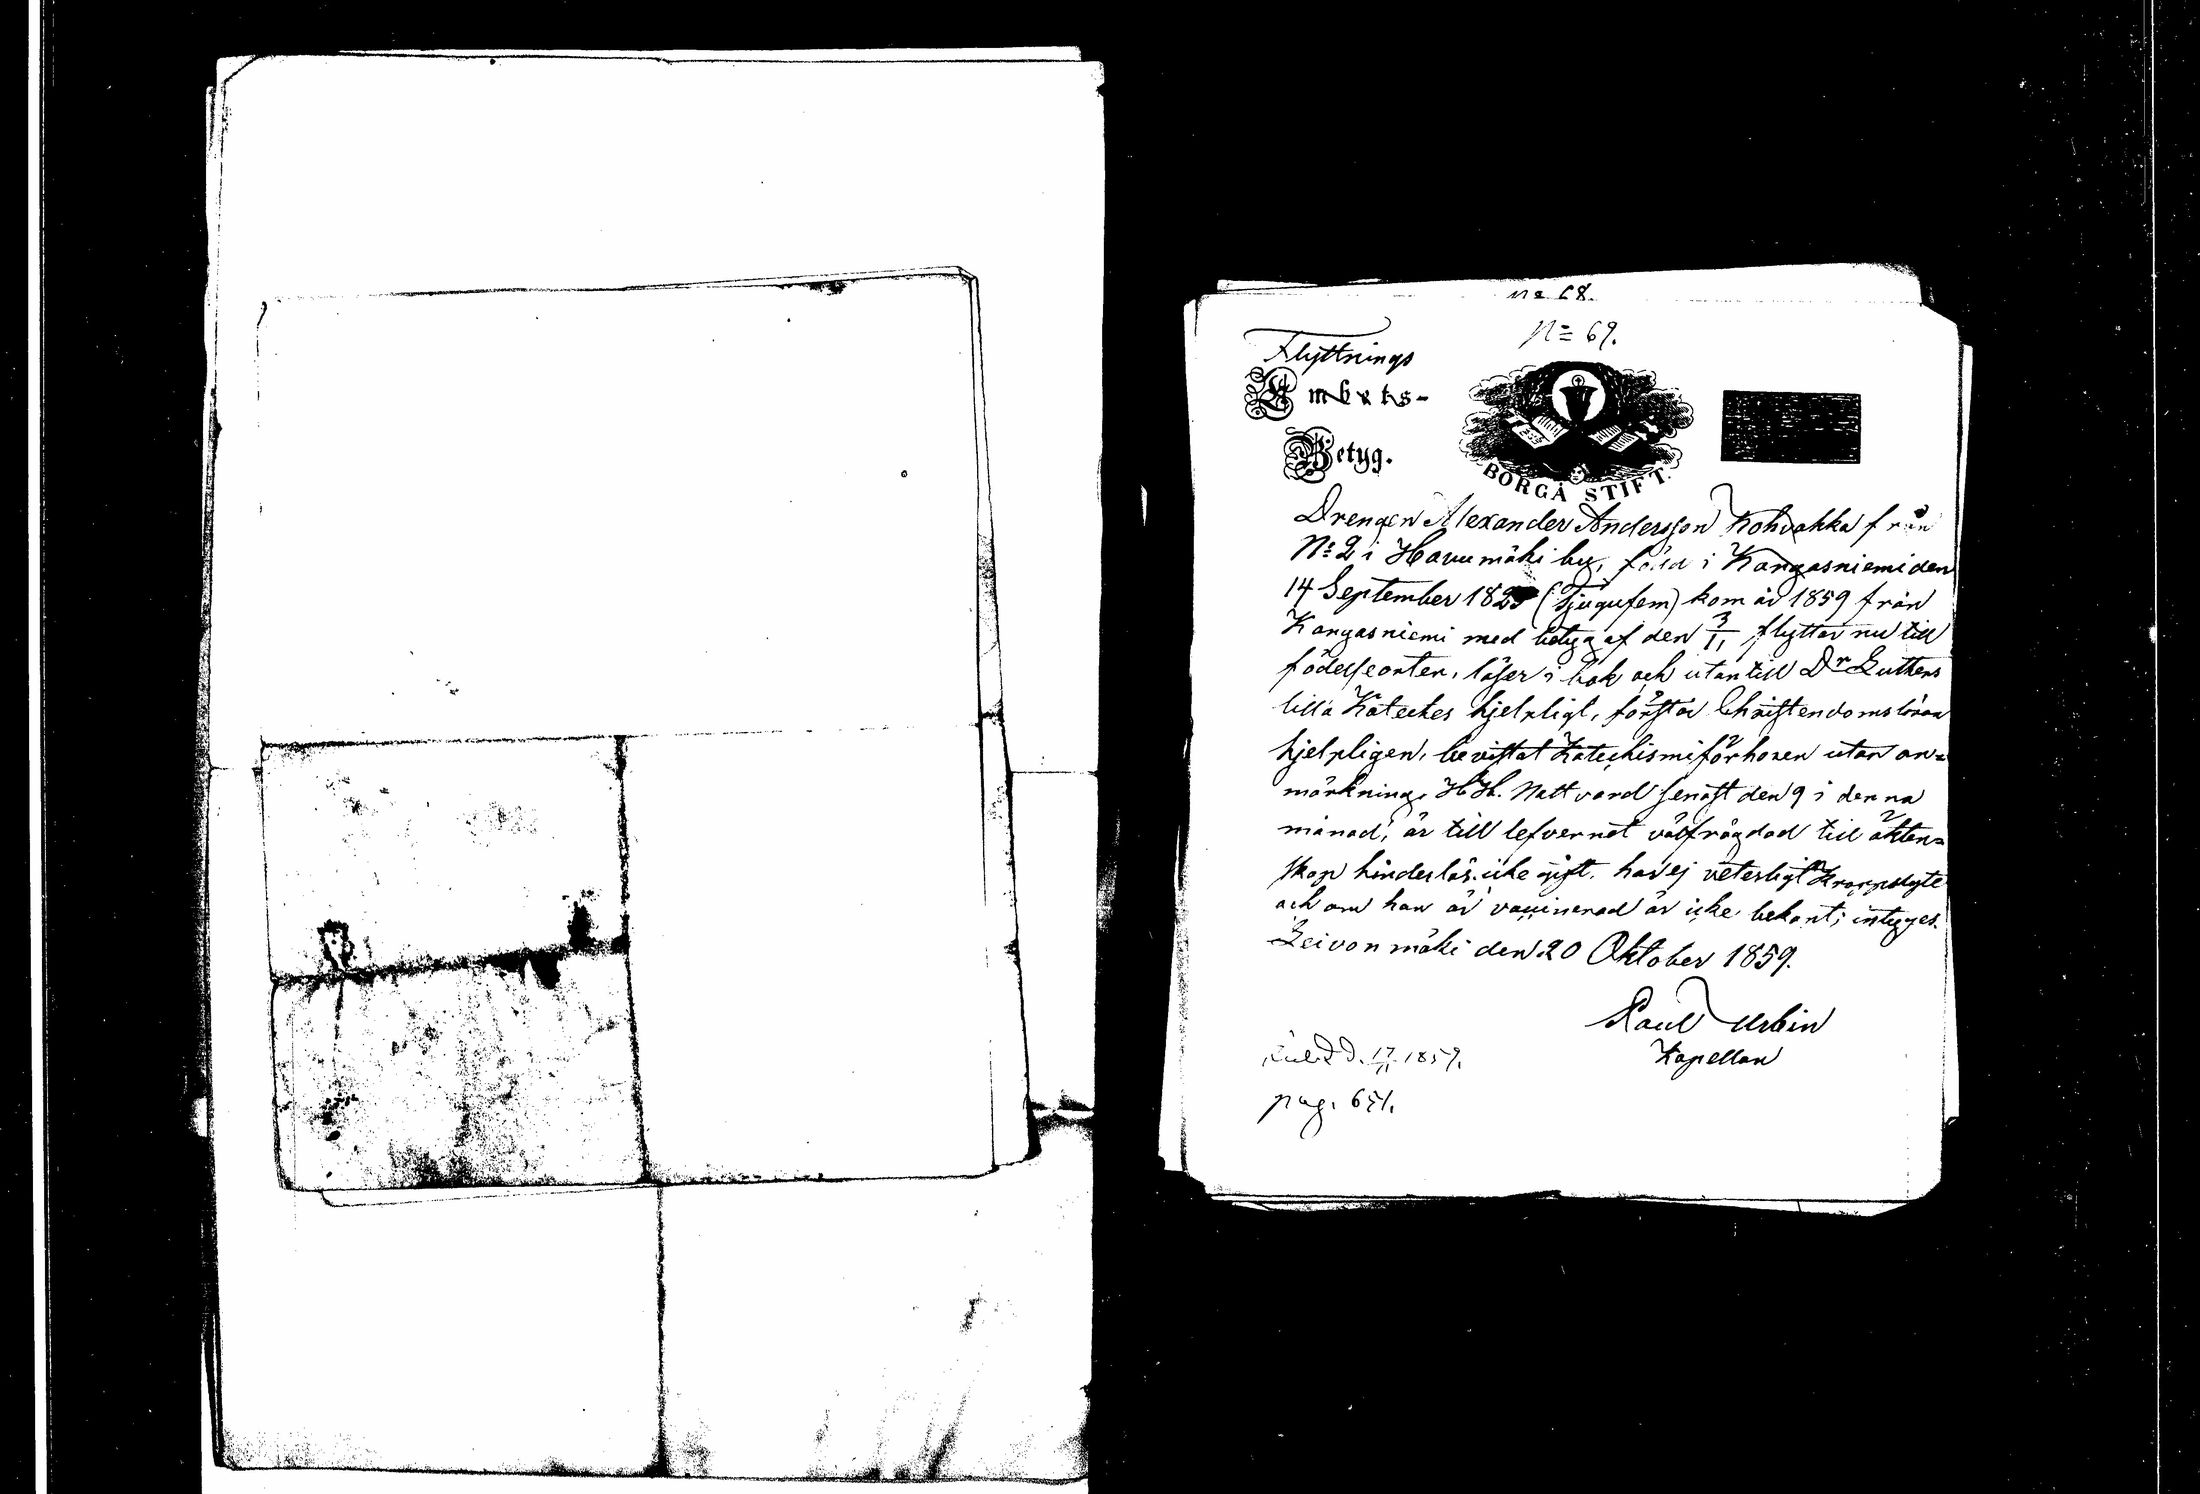 No 68.
No 69.
Flyttnings
Embets-
Betyg.
BORGÅ STIFT.
Drengen Alexander Andersson Kohvakka från
No 2 i Havumäki by, född i Kangasniemi den
14 September 1825 (Tjugufem) kom år 1859 från
Kangasniemi med betyg af den 3/11, flyttar nu till
födelseorten, läser i bok och utantill Dr Luthers
lilla Kateckes hjelpligt, förstår Christendomsläran
hjelpligen, bevistat Katechismiförhören utan an=
märkning, H.H. Nattvard senast den 9 i denna
månad, är till lefvernet välfrägdad till äkten=
skap hinderlös. icke gift. har ej veterligt Kroppslyte
och om han är vaccinerad är icke bekant; intyges.
Leivonmäki den 20 Oktober 1859.
Paul Urbin
Kapellan
d. 17/11 1859.
pag. 651.